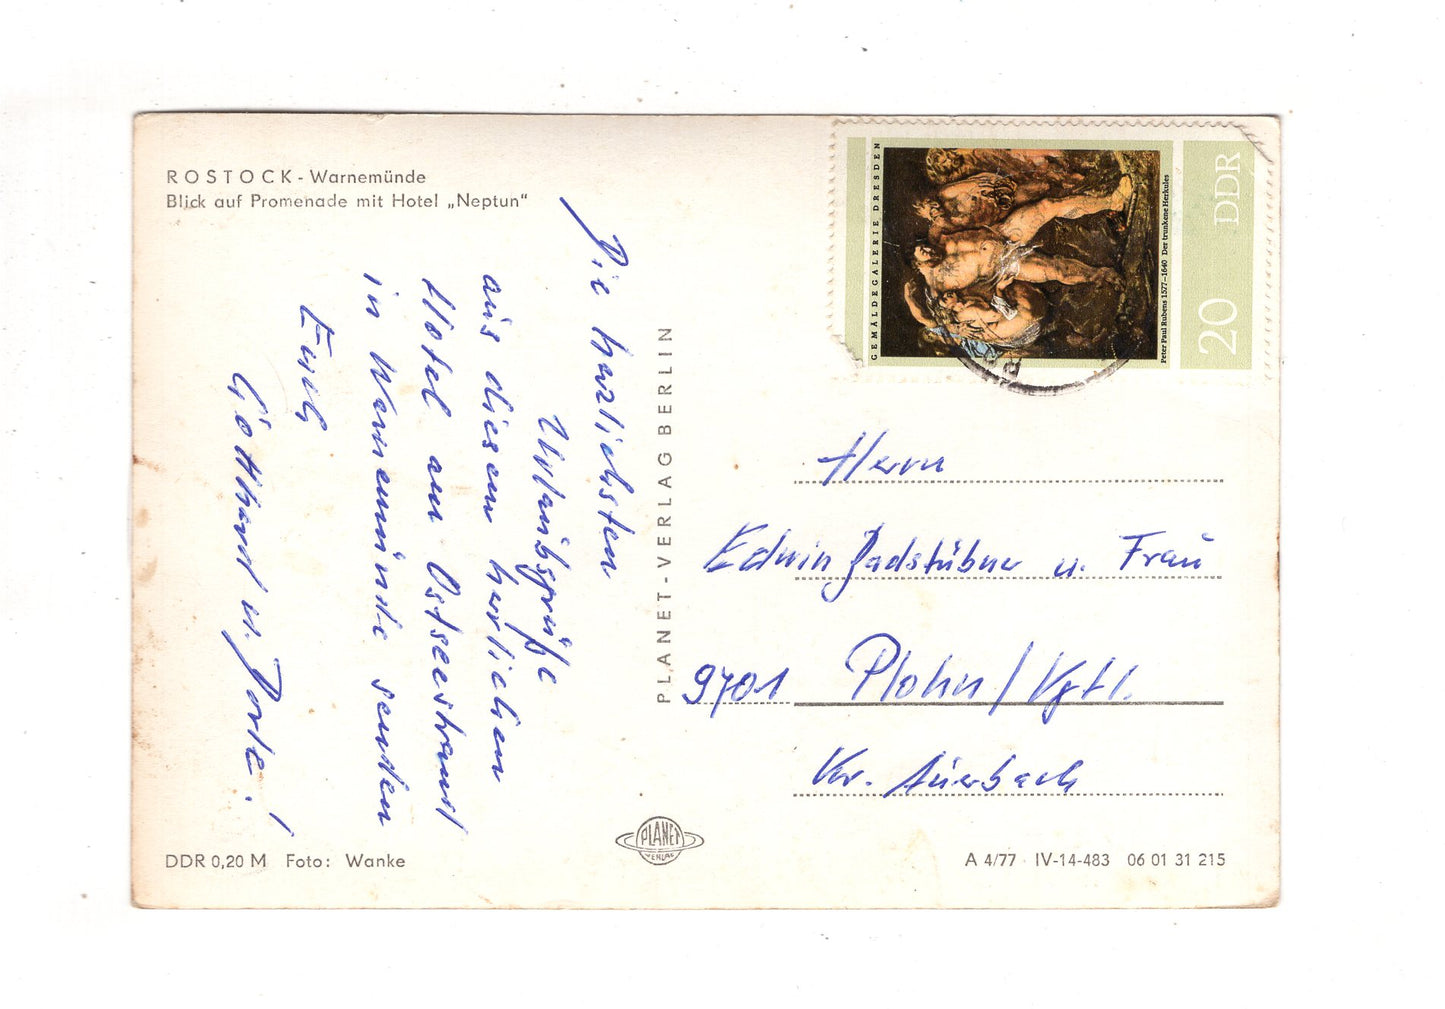 ROSTOCK - Warnemünde
Blick auf Promenade mit Hotel „Neptun“
Die herzlichsten
Urlaubsgrüße
aus diesem herrlichen
Hotel am Ostseestrand
in Warnemünde senden
Euch
Gotthard u. Dorle!
PLANET-VERLAG BERLIN
GEMÄLDEGALERIE DRESDEN
Peter Paul Rubens 1577–1640 Der trunkene Herkules
20 DDR
Herrn
Edwin Badstübner u. Frau
9701 Plohn/Vgtl.
Kr. Auerbach
PLANET
VERLAG
DDR 0,20 M Foto: Wanke
A 4/77 · IV-14-483 06 01 31 215